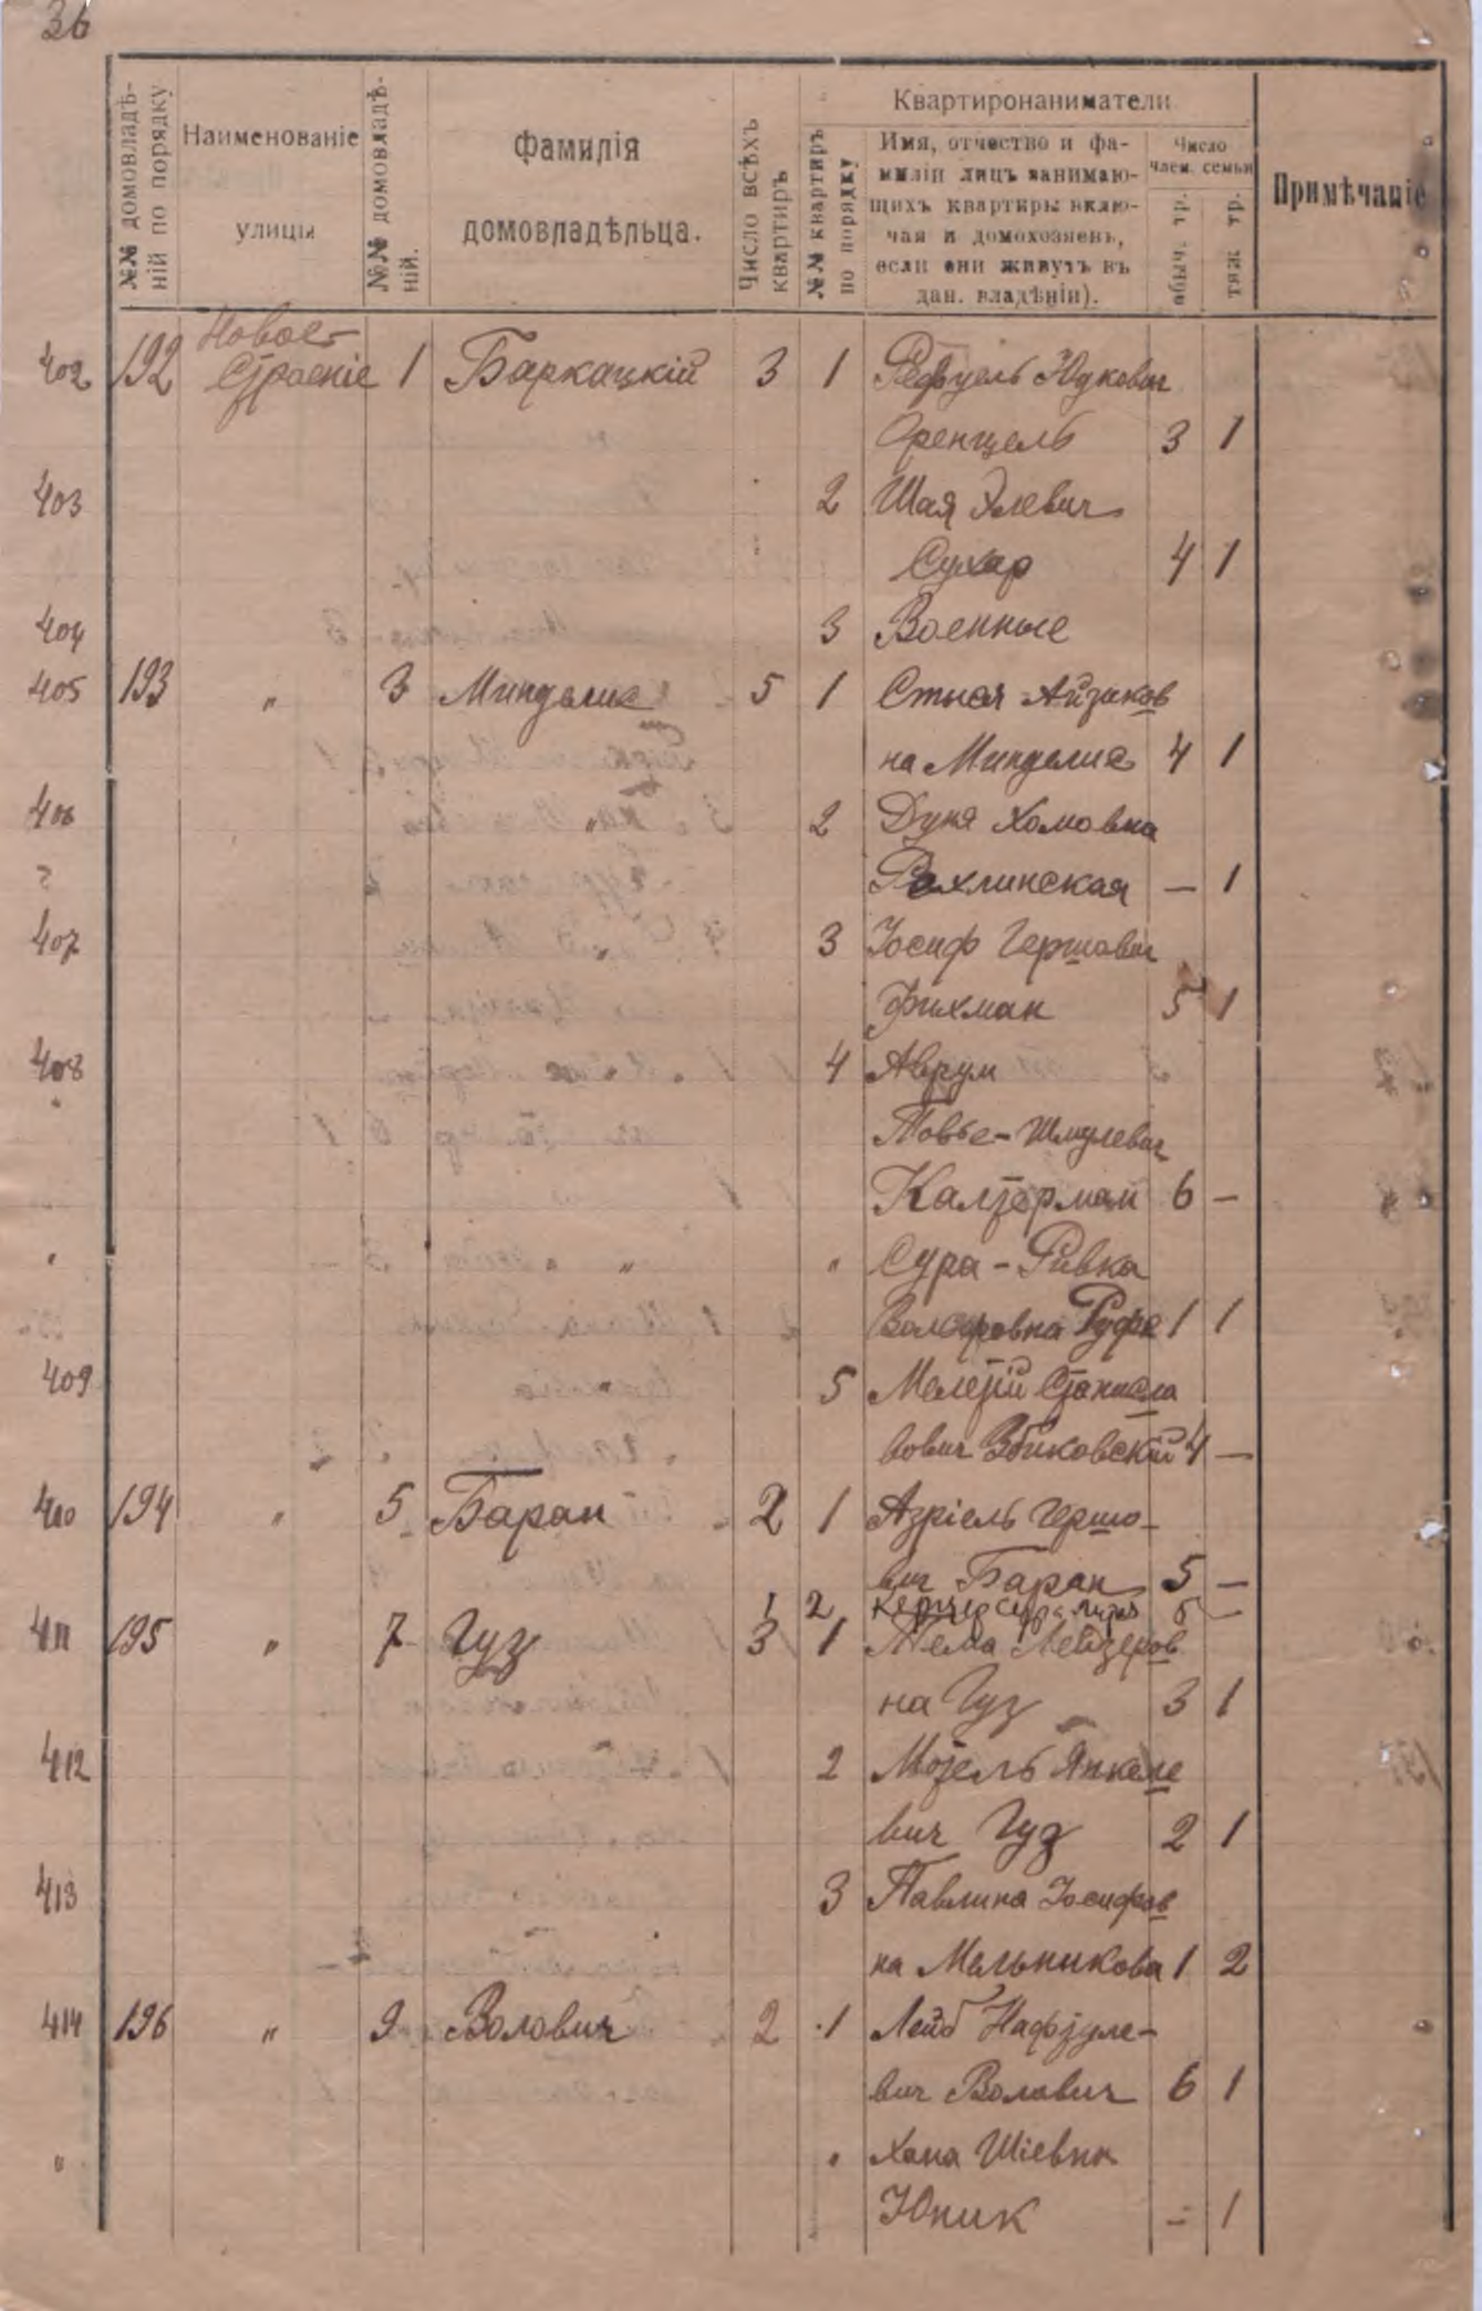 36
№№ домовладѣ-
ній по порядку
Наименованіе
улицы
№№ домовладѣ-
ній.
Фамилія
домовладѣльца.
Число всѣхъ
квартиръ
Квартиронаниматели
№№ квартиръ
по порядку
Имя, отчество и фа-
миліи лицъ занимаю-
щихъ квартиры вклю-
чая и домохозяевъ,
если они живутъ въ
дан. владѣніи).
Число
член. семьи
обыч. тр.
тяж тр.
Примѣчаніе
Новое-
402 192 Строеніе 1 Баркацкій 3 1
Оренцель 3 1
403 2 Шая Элевич
Сухар 4 1
404 3 Военные
405 193 " 3 5 1 Айзиков
на 4 1
406 2 Дуня Хомовна
Рахлинская — 1
407 3 Іосиф Гершович
Фихман 5 1
408 4 Аврум
Товье-Шмулевич
6 —
" " Сура-Ривка
1 1
409 5 Мелетій Станисла
вович 4 —
410 194 " 5 Баран 2 1 Азріель Гершо-
вич Баран 5 —
2
411 195 " 7 Гуз 3 1 Лейзеров
на Гуз 3 1
412 2 Мотель Янкеле
вич Гуз 2 1
413 3 Павлина Іосифов
на Мельникова 1 2
414 196 " 9 Волович 2 1 Лейб Нафтуле-
вич Волович 6 1
" " Хана Шіевна
Юник - 1